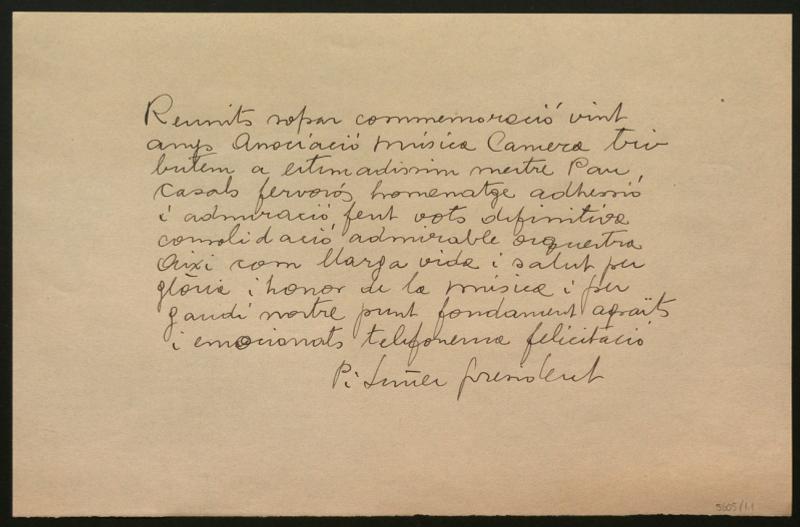 Reunits sopar commemoració vint
anys Associació Música Camera tri
butem a estimadissim mestre Pau
Casals fervorós homenatge adhessió
i admiració fent vots difinitiva
consolidació admirable orquestra
Aixi com llarga vida i salut per
glòria i honor de la música i per
gaudi nostre punt fondament agraïts
i emocionats telefonema felicitació
Pi Suñer president
5605/1.1